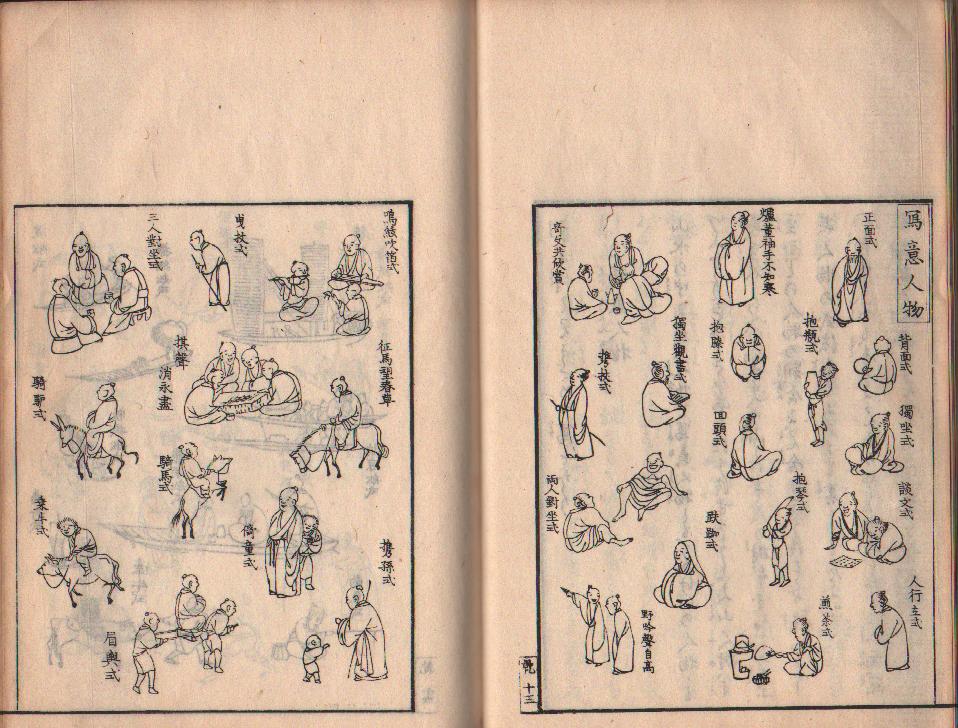 寫意人物
正面式
背面式
獨坐式
談文式
人行立式
抱瓶式
抱琴式
煎茶式
爐薰袖手不知寒
抱膝式
回頭式
趺跏式
獨坐觀書式
携杖式
兩人對坐式
野吟聲自高
十三
鳴絃吹笛式
征馬望春草
携孫式
曳杖式
倚童式
三人對坐式
棋聲
消永晝
騎馬式
肩輿式
騎驢式
乗牛式